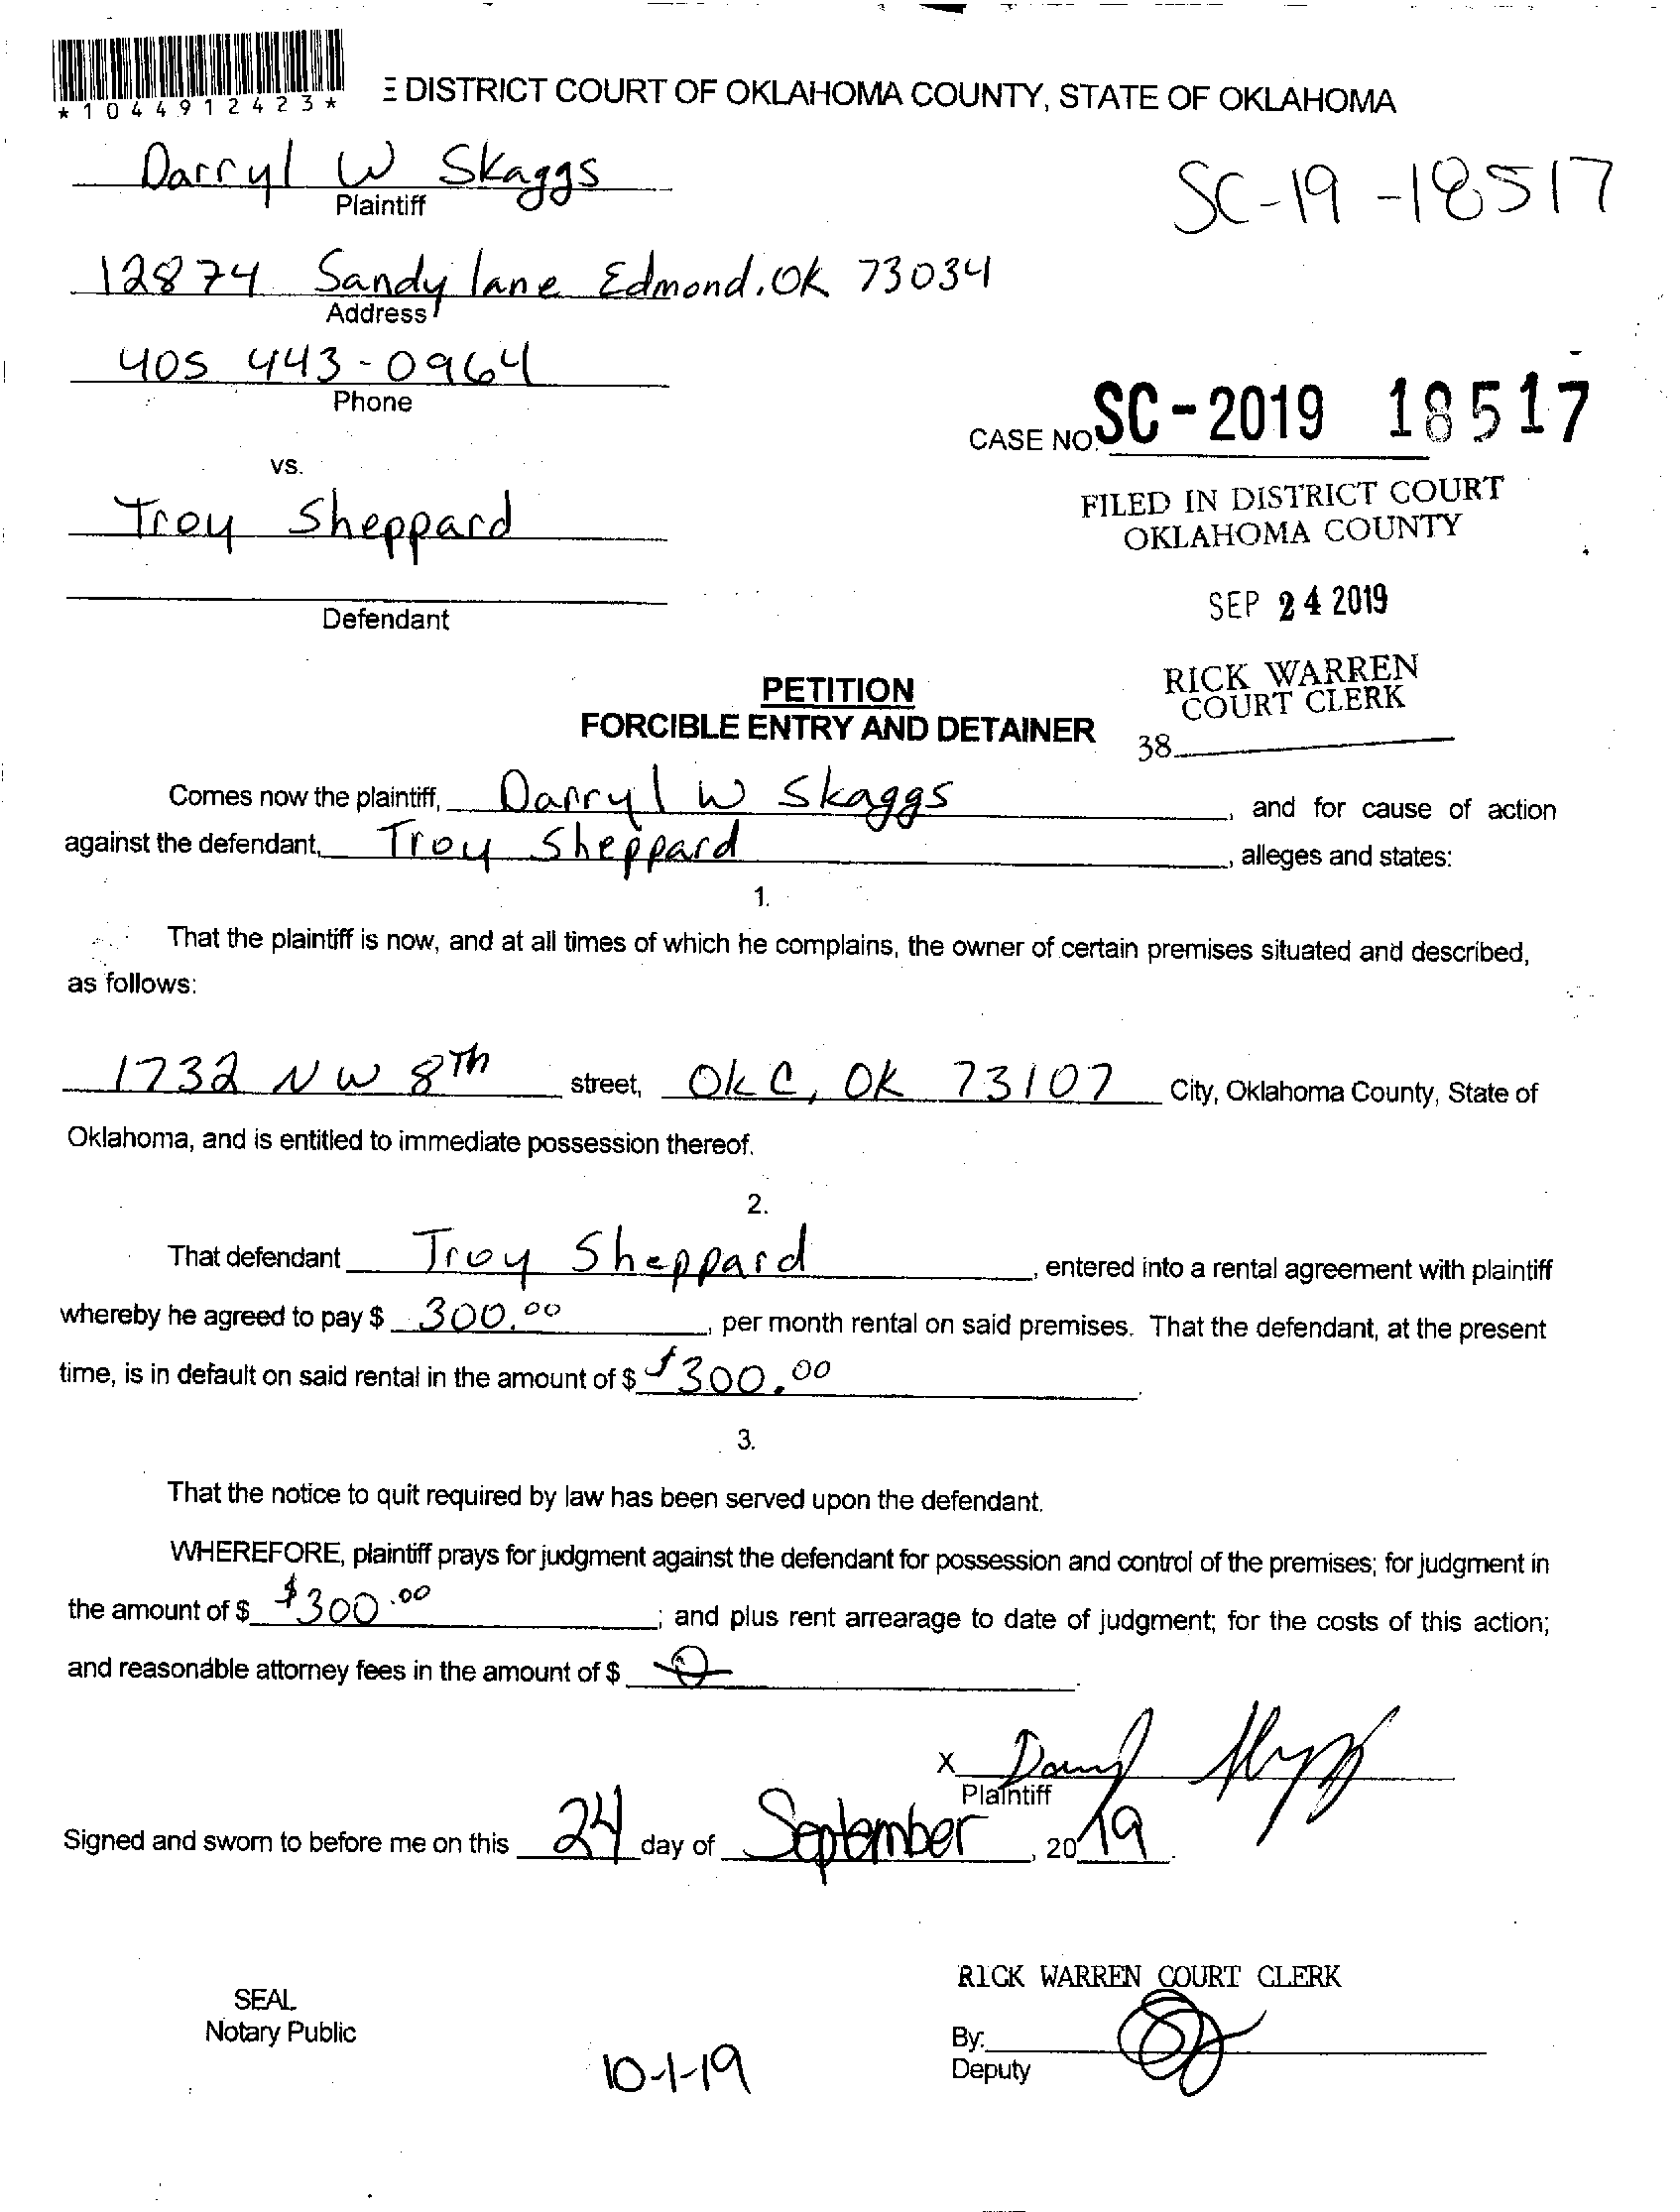 *1044912423*
E DISTRICT COURT OF OKLAHOMA COUNTY, STATE OF OKLAHOMA
Darryl W Skaggs
Plaintiff
SC-19-18517
12874 Sandy lane Edmond, OK 73034
Address
405 443-0964
Phone
CASE NO. SC-2019 18517
vs.
FILED IN DISTRICT COURT
OKLAHOMA COUNTY
Troy Sheppard
SEP 24 2019
Defendant
RICK WARREN
COURT CLERK
38
PETITION
FORCIBLE ENTRY AND DETAINER
Comes now the plaintiff, Darryl W Skaggs, and for cause of action
against the defendant, Troy Sheppard, alleges and states:
1.
That the plaintiff is now, and at all times of which he complains, the owner of certain premises situated and described,
as follows:
1732 NW 8Th street, OKC, OK 73107 City, Oklahoma County, State of
Oklahoma, and is entitled to immediate possession thereof.
2.
That defendant Troy Sheppard, entered into a rental agreement with plaintiff
whereby he agreed to pay $ 300.00, per month rental on said premises. That the defendant, at the present
time, is in default on said rental in the amount of $ $300.00.
3.
That the notice to quit required by law has been served upon the defendant.
WHEREFORE, plaintiff prays for judgment against the defendant for possession and control of the premises; for judgment in
the amount of $ $300.00; and plus rent arrearage to date of judgment; for the costs of this action;
and reasonable attorney fees in the amount of $ 0.
X Darryl Skaggs
Plaintiff
Signed and sworn to before me on this 24 day of September, 2019.
RICK WARREN COURT CLERK
SEAL
Notary Public
By:
Deputy
10-1-19